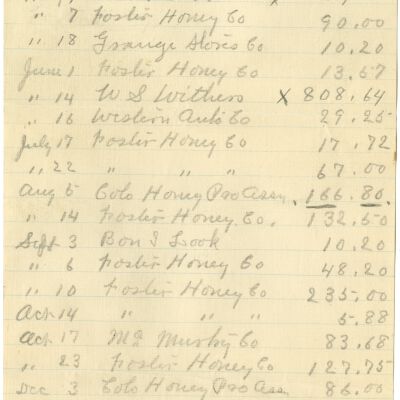 " 7 Foster Honey Co 90.00
" 18 Grange Stores Co 10.20
June 1 Foster Honey Co 13.57
" 14 W S Withers X 808.64
" 16 Western Auto Co 29.25
July 17 Foster Honey Co 17.72
" 22 " " " 67.00
Aug 5 Colo Honey Pro Assn. 166.80
" 14 Foster Honey Co. 132.50
Sept 3 Bon I Look 10.20
" 6 Foster Honey Co 48.20
" 10 Foster Honey Co 235.00
Oct 14 " " " 5.88
Oct 17 Murphy Co 83.68
" 23 Foster Honey Co 127.75
Dec 3 Colo Honey Pro Ass. 86.00